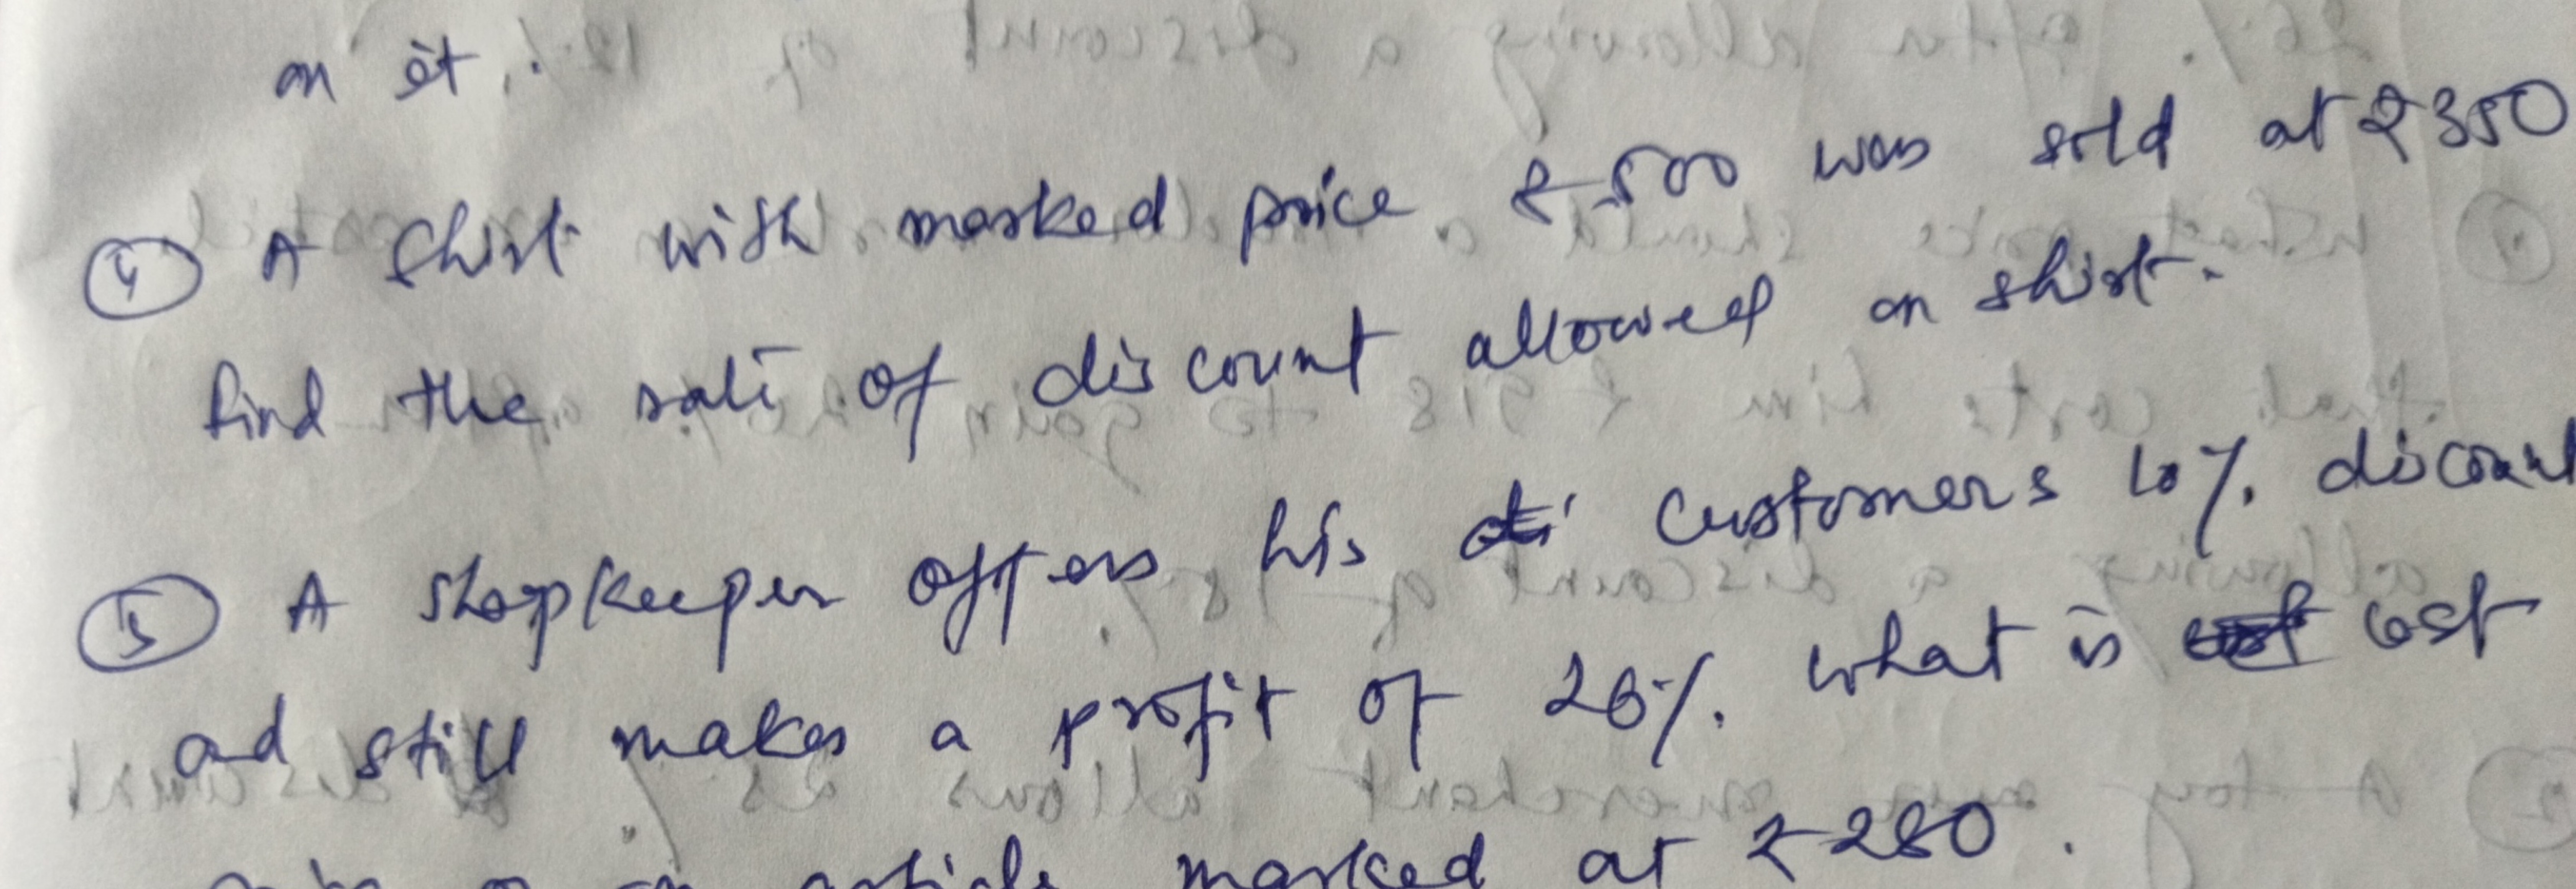 on it.
④ A shirt with marked price ₹500 was sold at ₹350
find the rate of discount allowed on shirt.
⑤ A shopkeeper offers his customers 10% discount
and still makes a profit of 26%. what is cost
marked at ₹280.